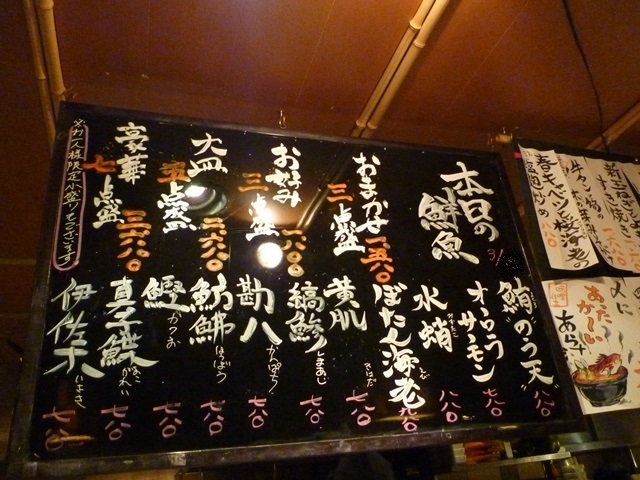 本日の
鮮魚
おまかせ
三点盛 一五八〇
お好み
三点盛 一八〇〇
大皿
五点盛 二六八〇
豪華
七点盛 三六八〇
※お一人様限定小盛りもございます
鮪のう天 八八〇
オーロラ
サーモン 七八〇
水蛸 八八〇
ぼたん海老 九八〇
えび
黄肌 きはだ 七八〇
縞鯵 しまあじ 七八〇
勘八 かんぱち 七八〇
魴鮄 ほうぼう 七八〇
鰹 かつお 七八〇
真子鰈 まこがれい 七八〇
伊佐木 いさき 七八〇
春キャベツと桜海老の
〆に
あたたかーい
あら汁